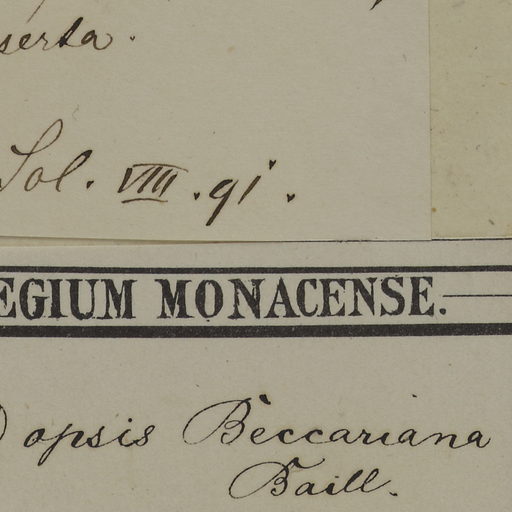 serta.
Sol. VIII. 91.
EGIUM MONACENSE.
opsis Beccariana
Baill.